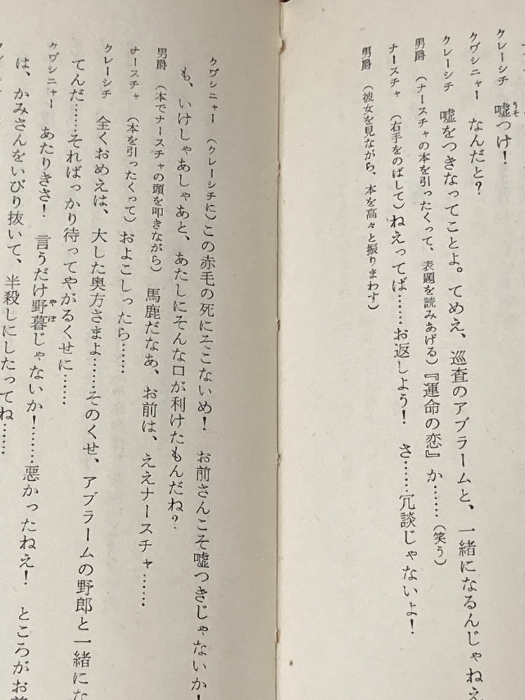 クレーシチ　嘘つけ！
クヴシニャー　なんだと？
クレーシチ　嘘をつきなってことよ。てめえ、巡査のアブラームと、一緒になるんじゃねえ
男爵　（ナースチャの本を引ったくって、表題を読みあげる）『運命の恋』か……（笑う）
ナースチャ　（右手をのばして）ねえってば……お返しよう！　さ……冗談じゃないよ！
男爵　（彼女を見ながら、本を高々と振りまわす）
クヴシニャー　（クレーシチに）この赤毛の死にそこないめ！　お前さんこそ嘘つきじゃないか！
も、いけしゃあしゃあと、あたしにそんな口が利けたもんだね？
男爵　（本でナースチャの頭を叩きながら）　馬鹿だなあ、お前は、ええナースチャ……
ナースチャ　（本を引ったくって）およこしったら……
クレーシチ　全くおめえは、大した奥方さまよ……そのくせ、アブラームの野郎と一緒にな
てんだ……そればっかり待ってやがるくせに……
クヴシニャー　あたりきさ！　言うだけ野暮じゃないか！……悪かったねえ！　ところがお前
は、かみさんをいびり抜いて、半殺しにしたってね……